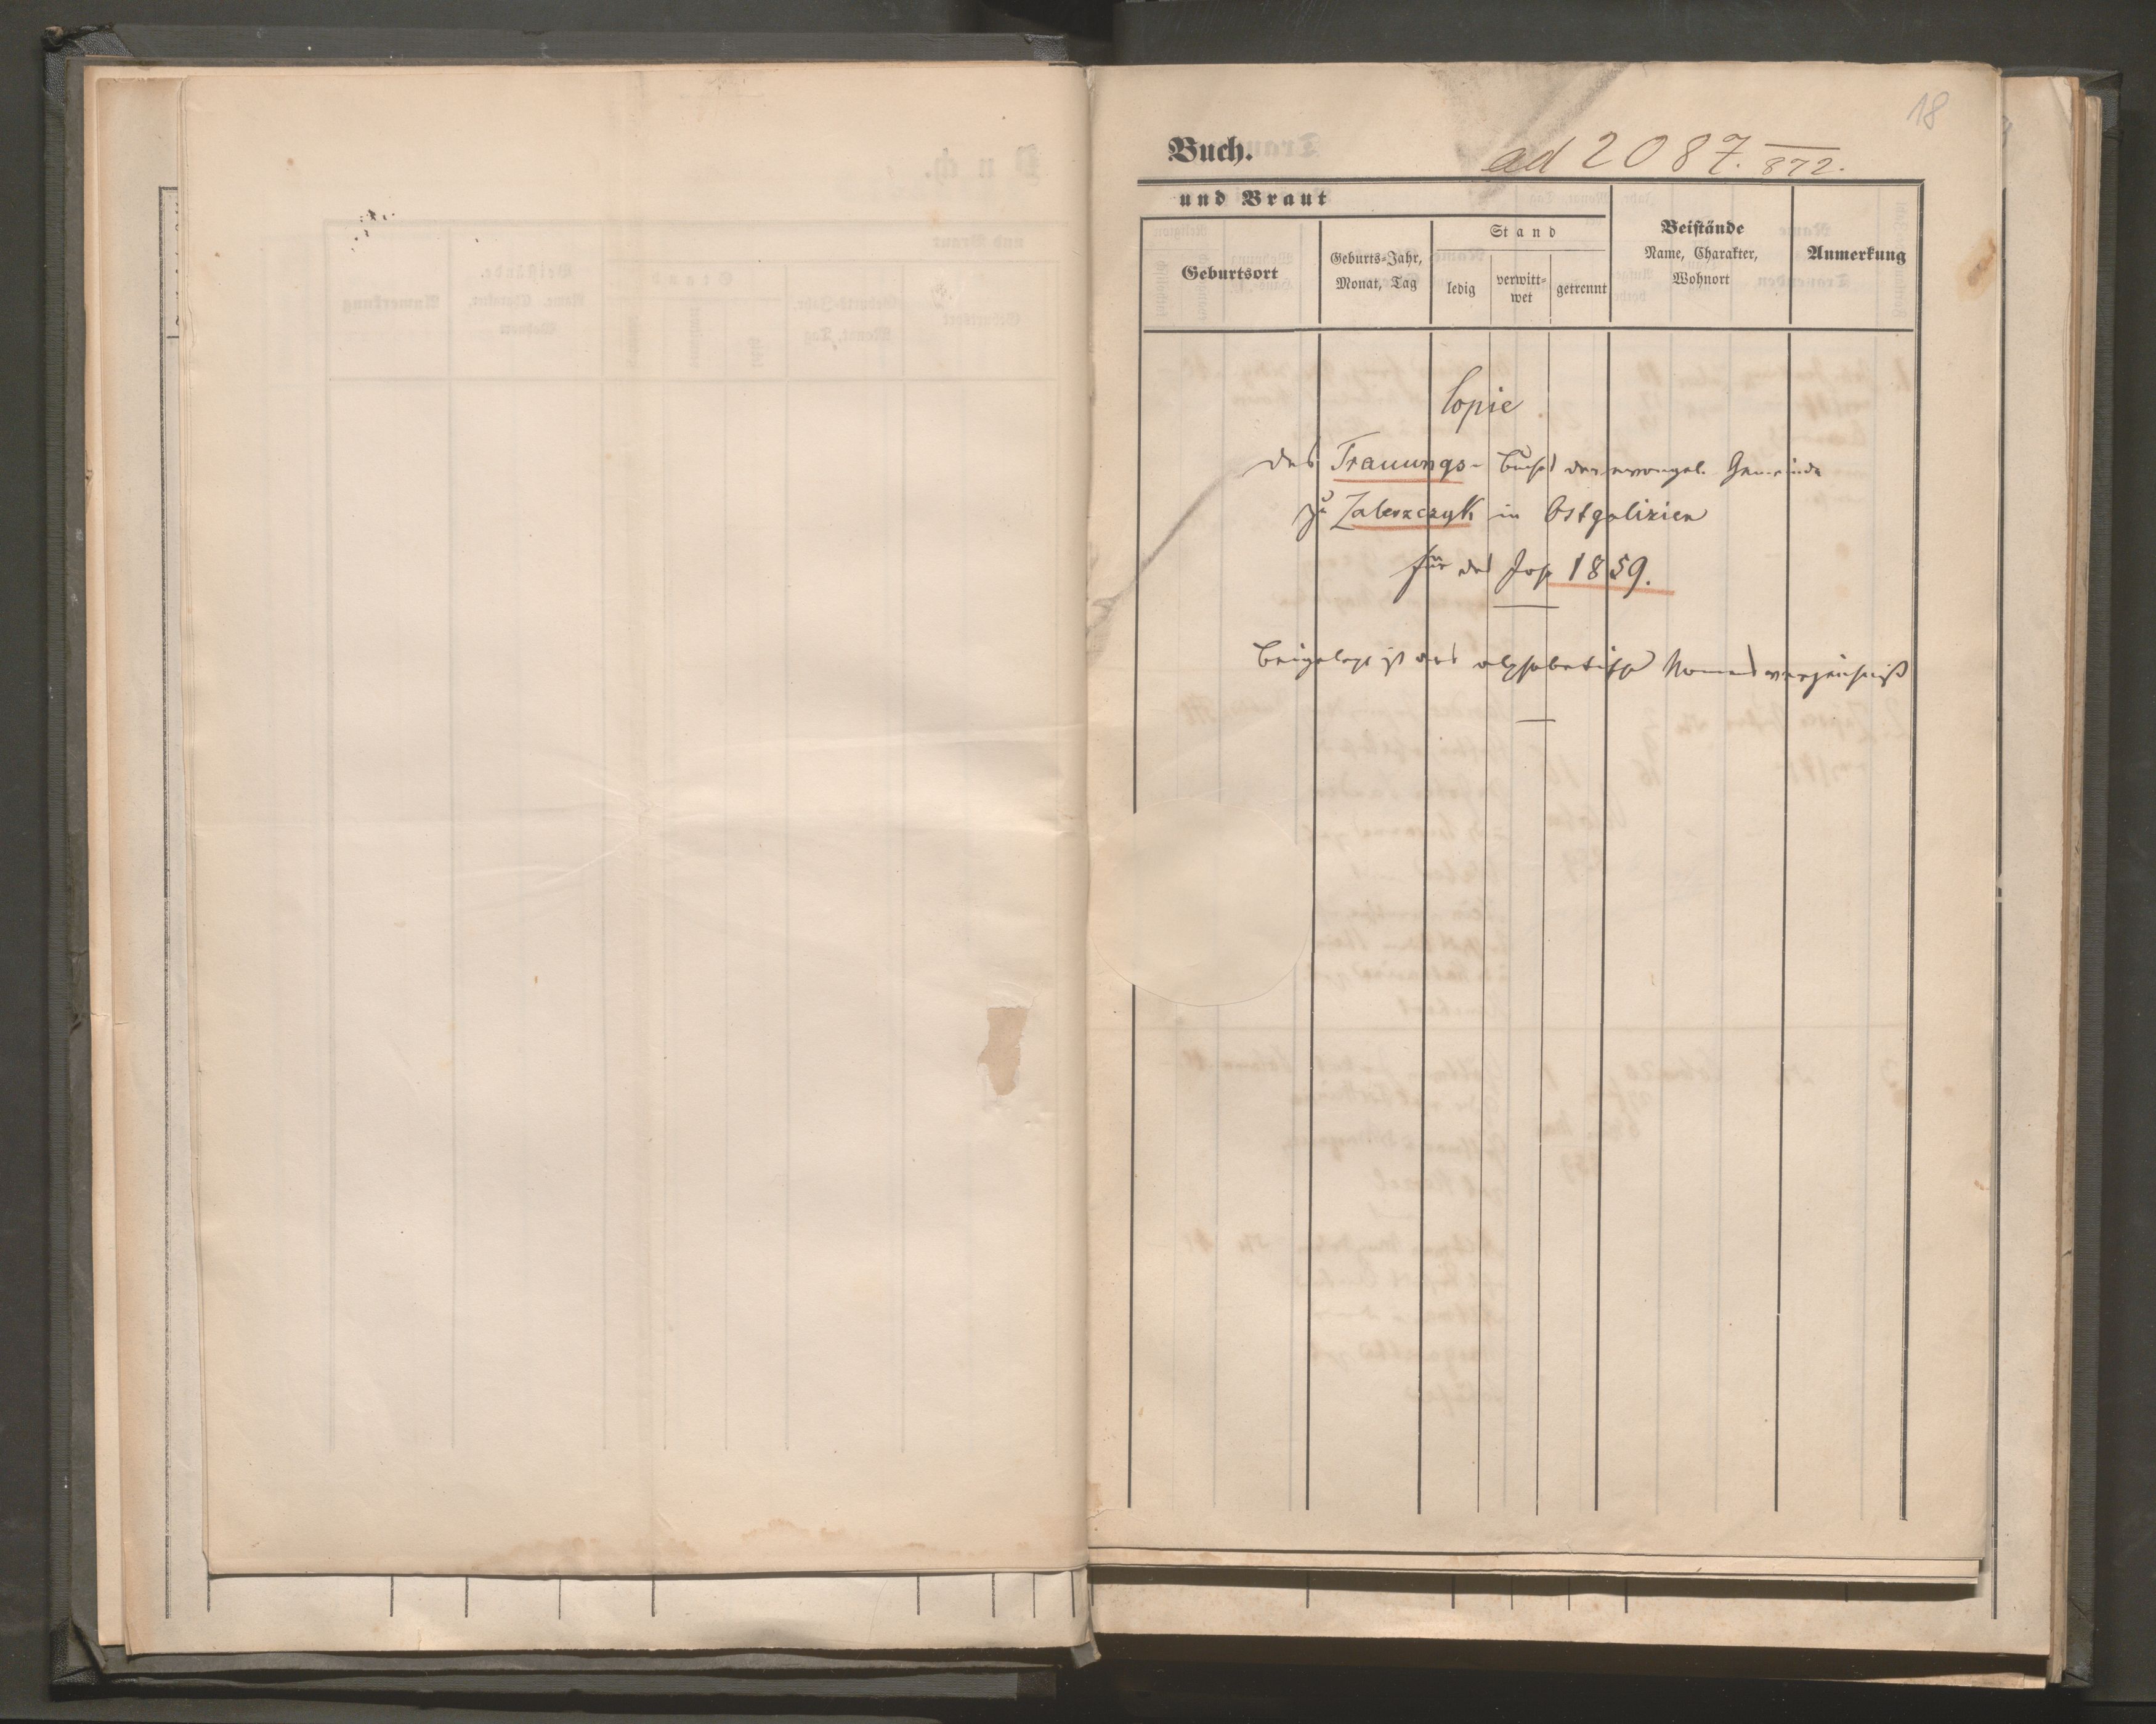 18
Buch.
ad 2087. 872.
und Braut
Geburtsort
Geburts-Jahr, Monat, Tag
Stand
ledig
verwitt-
wet
getrennt
Beistände
Name, Charakter,
Wohnort
Anmerkung
Copie
des Trauungs-Buchs der evangel. Gemeinde
zu Zaleszczyk in Ostgalizien
für das Jahr 1859.
Beigelegt ist das alphabetische Namensverzeichniß